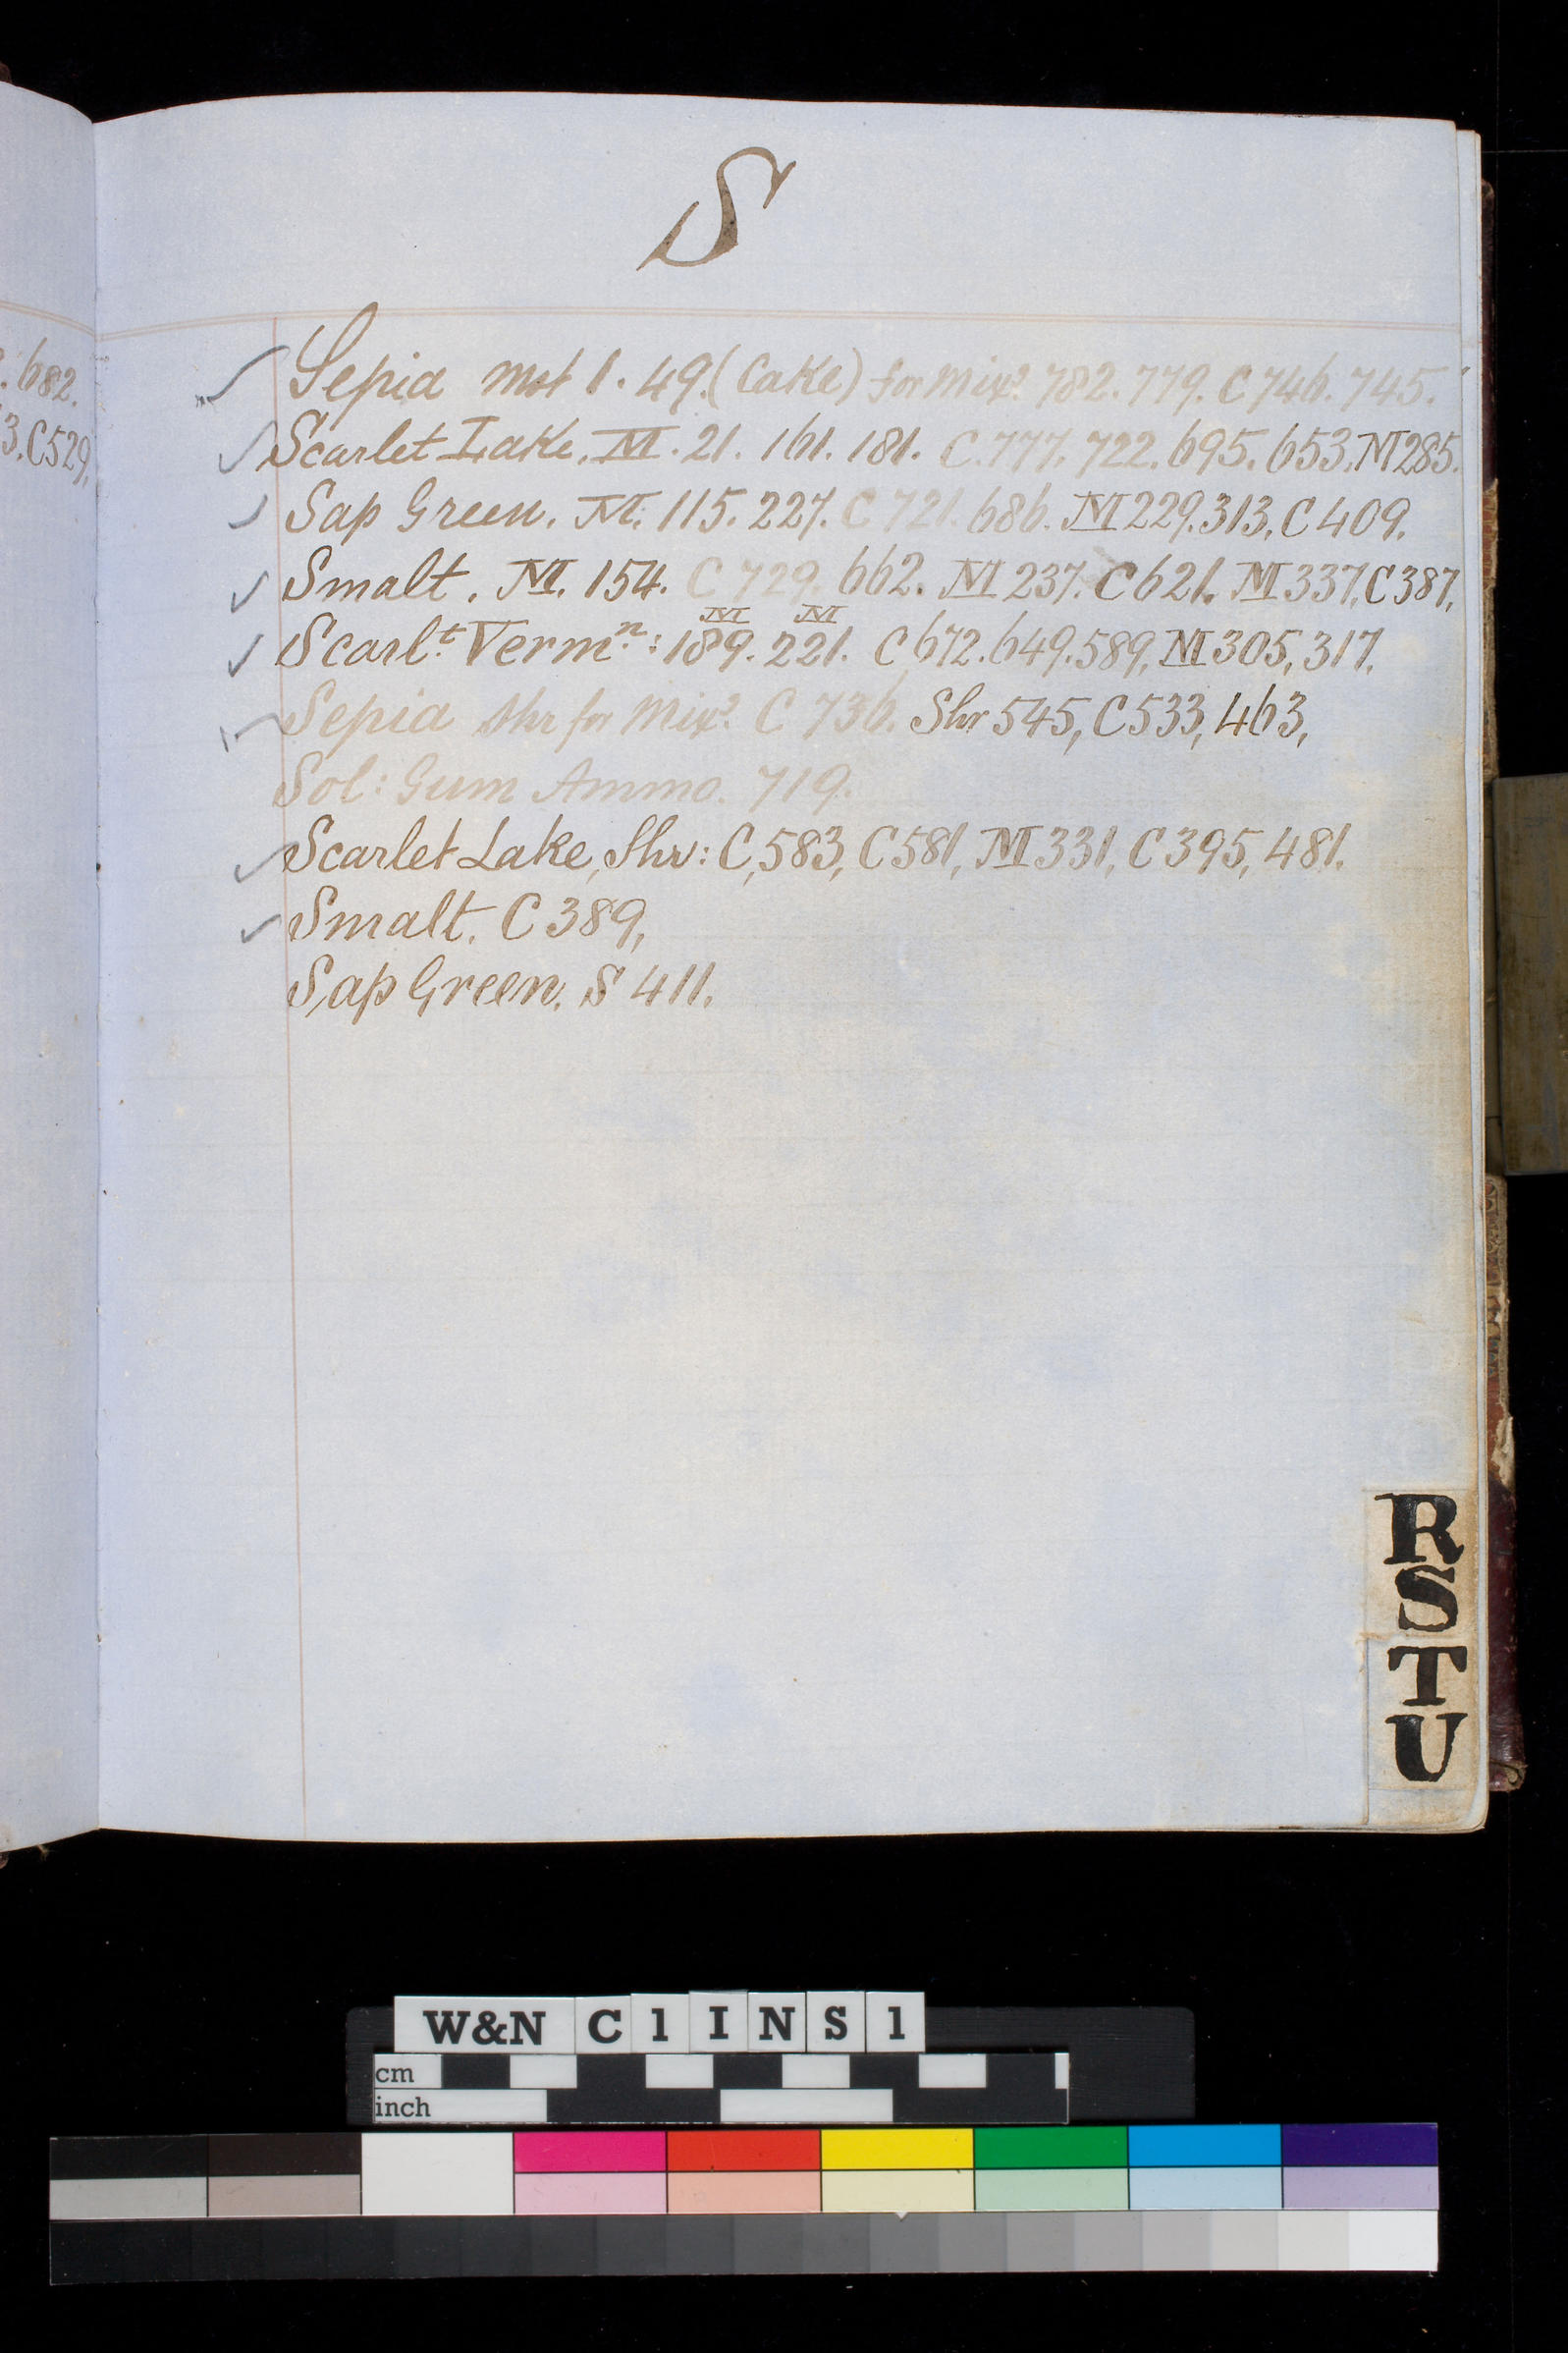 S
. 682.
3. C529,
Sepia Mst 1. 49. (Cake) for Mixs. 782. 779. C 746. 745.
Scarlet Lake. M. 21. 161. 181. C. 777. 722. 695. 653. M 285.
Sap Green. M. 115. 227. C 721. 686. M 229. 313, C 409.
Smalt. M. 154. C 729. 662. M 237. C 621. M 337, C 387,
M M
Scarlt. Vermn: 189. 221. C 672. 649. 589, M 305, 317.
Sepia Shr for Mixs. C 736. Shr 545, C 533, 463,
Sol: Gum Ammo. 719.
Scarlet Lake, Shr: C, 583, C 581, M 331, C 395, 481.
Smalt. C 389,
Sap Green. S 411.
R
S
T
U
W&N C 1 I N S 1
cm
inch